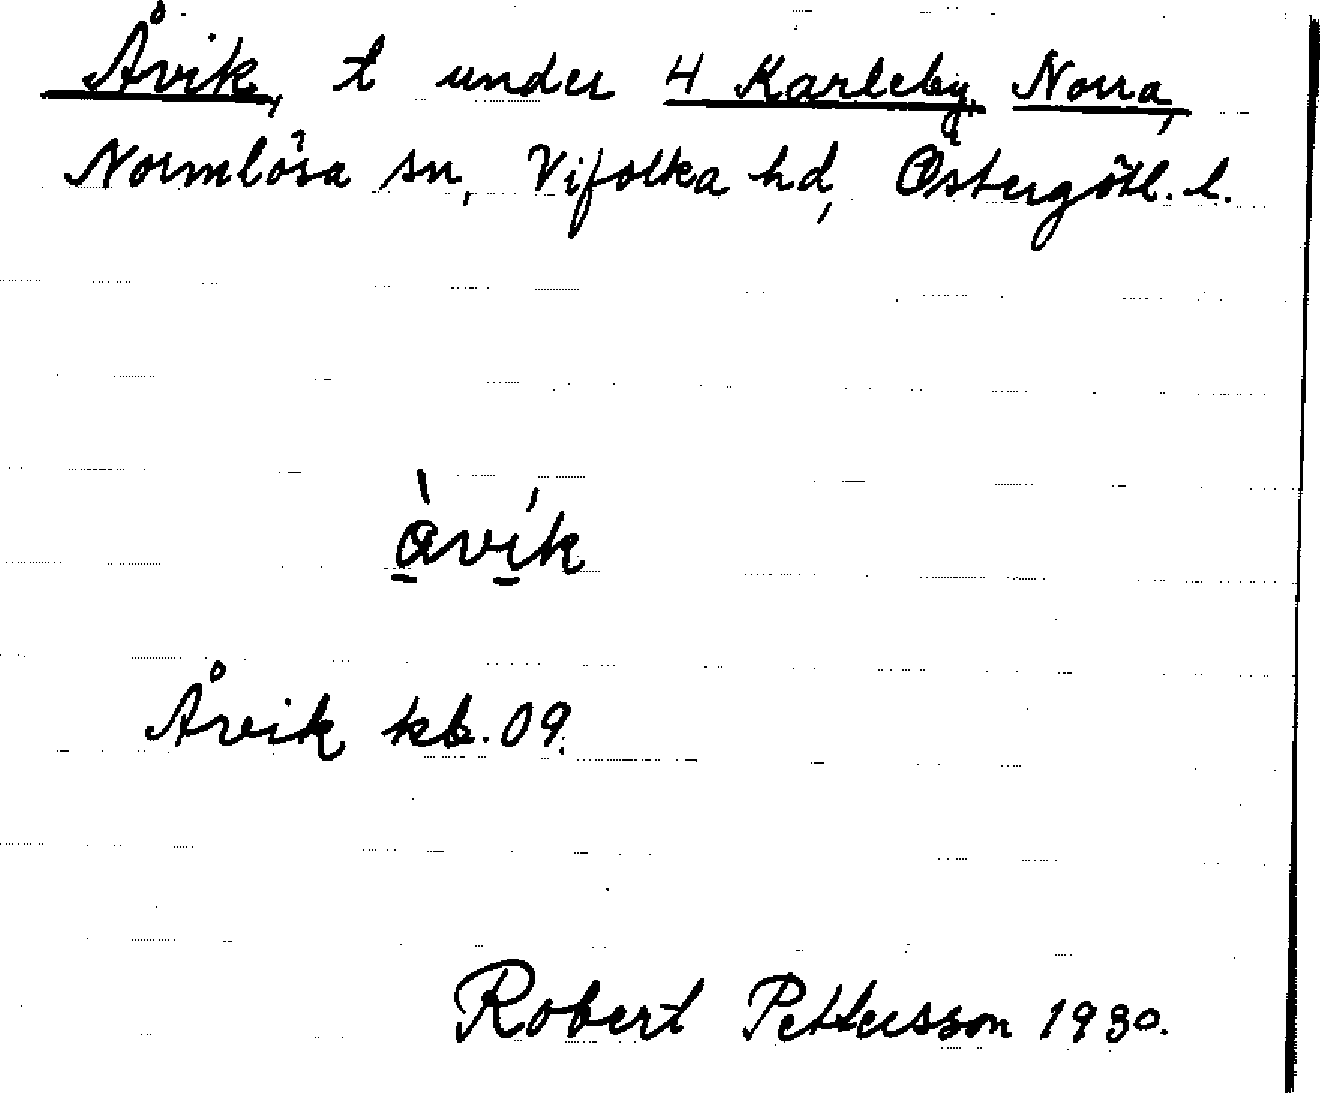 Åvik, t under 4 Karleby, Norra,
Normlösa sn, Vifolka hd, Östergötl. l.
å̠̀ví̠k
Åvik kb. 09.
Robert Pettersson 1930.